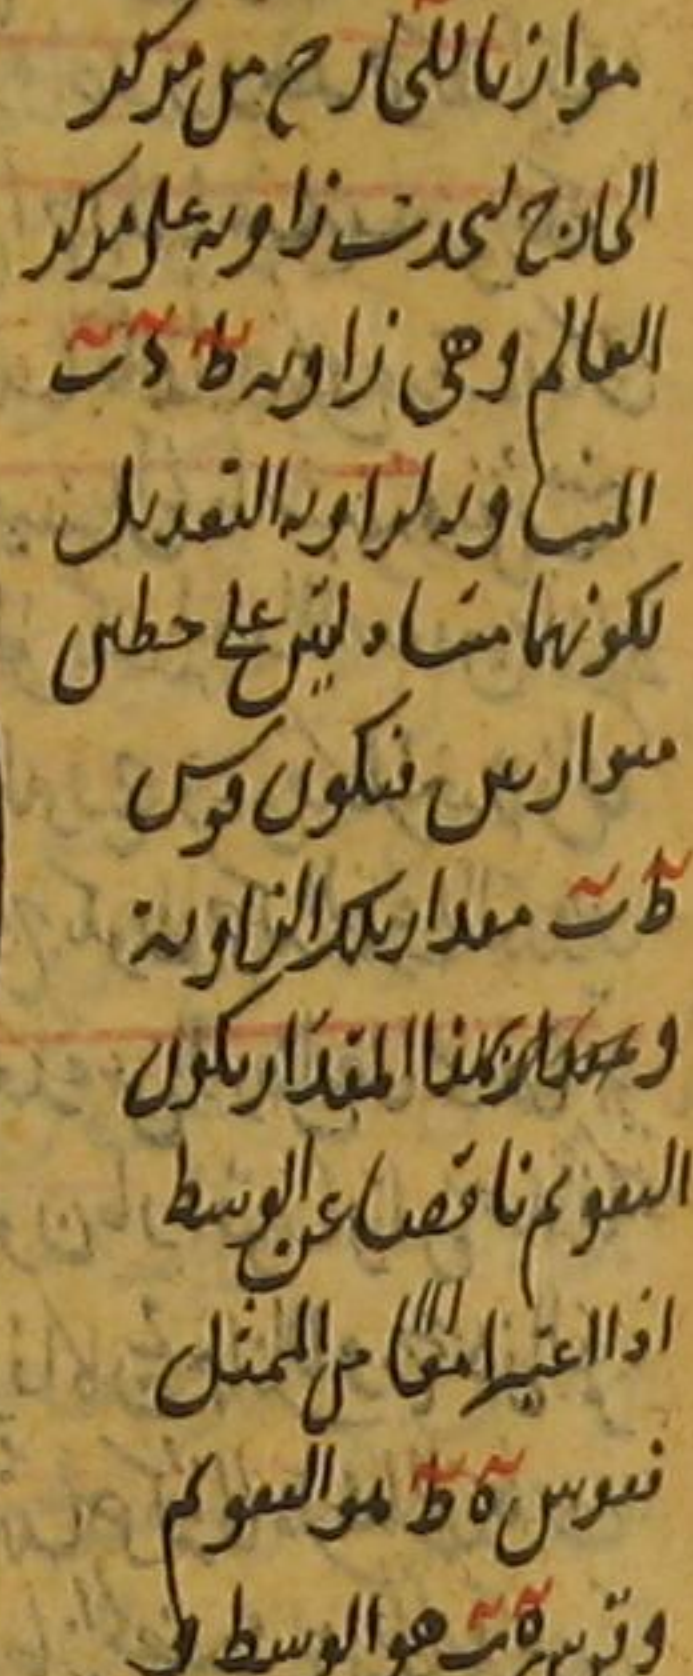 موازيا للخارج من مركز
الخارج لتحدث زاوية على مركز
العالم وهى زاوية ط د ب
المساوية لزاوية التعديل
لكونهما متبادلتين على خطين
متوازيين فيكون قوس
ط ب مقدار تلك الزاوية
المقدار يكون
التقويم ناقصا عن الوسط
اذا اعتبرا من الممثل
فقوس ه ط هو التقويم
وقوس ه ب هو الوسط و